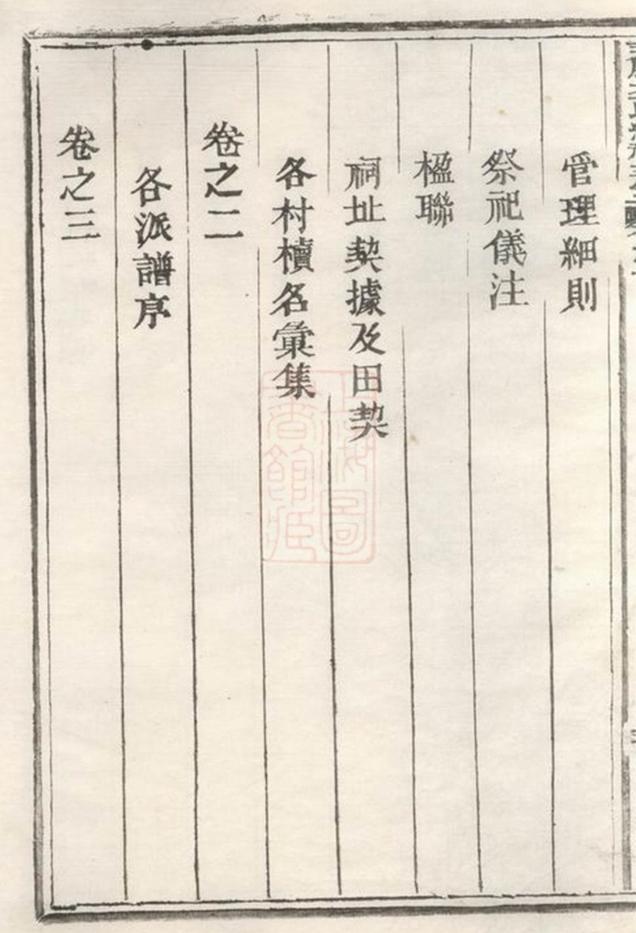 管理細則
祭祀儀注
楹聯
祠址契據及田契
各村櫝名彙集
卷之二
各派譜序
卷之三